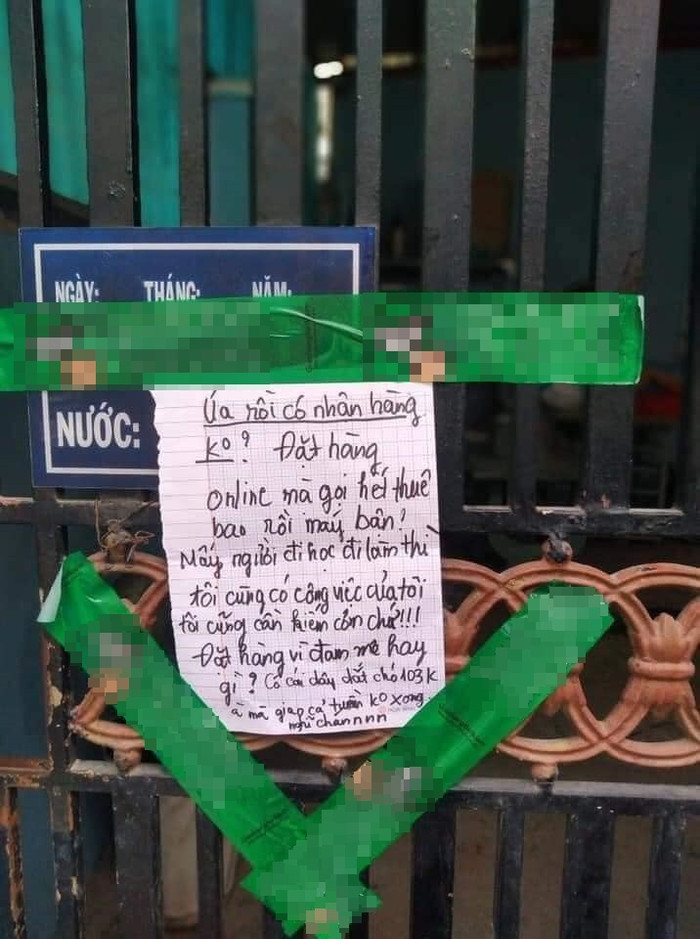 NGÀY: THÁNG: NĂM:
NƯỚC:
Úa rồi có nhân hàng
ko? Đặt hàng
online mà gọi hết thuê
bao rồi máy bân!
Mấy người đi học đi làm thì
tôi cũng có công việc của tôi
tôi cũng cần kiếm cơm chứ!!!
Đặt hàng vì đam mê hay
gì? Có cái dây dắt chó 103k
à mà giao cả tuần ko xong
nghĩ chánnnn